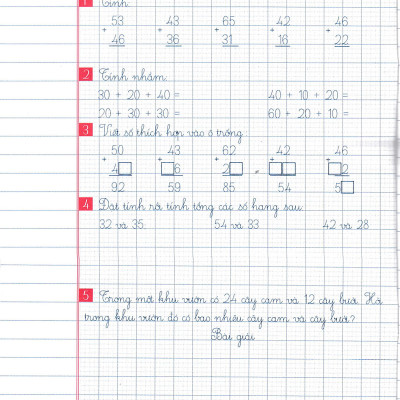 1 Tính:
53 43 65 42 46
+ + + + +
46 36 31 16 22
2 Tính nhẩm:
30 + 20 + 40 = 40 + 10 + 20 =
20 + 30 + 30 = 60 + 20 + 10 =
3 Viết số thích hợp vào ô trống
50 43 62 42 46
+ + + + +
4□ □6 2□ □□ □2
92 59 85 54 5□
4 Đặt tính rồi tính tổng các số hạng sau:
32 và 35 54 và 33 42 và 28
5 Trong một khu vườn có 24 cây cam và 12 cây bưởi. Hỏi
trong khu vườn đó có bao nhiêu cây cam và cây bưởi?
Bài giải